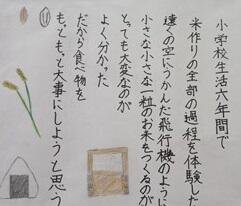 小学校生活六年間で
米作りの全部の過程を体験した
遠くの空にうかんだ飛行機のように
小さな小さな一粒のお米をつくるのが
とっても大変なのが
よく分かった
だから食べ物を
もっともっと大事にしようと思う